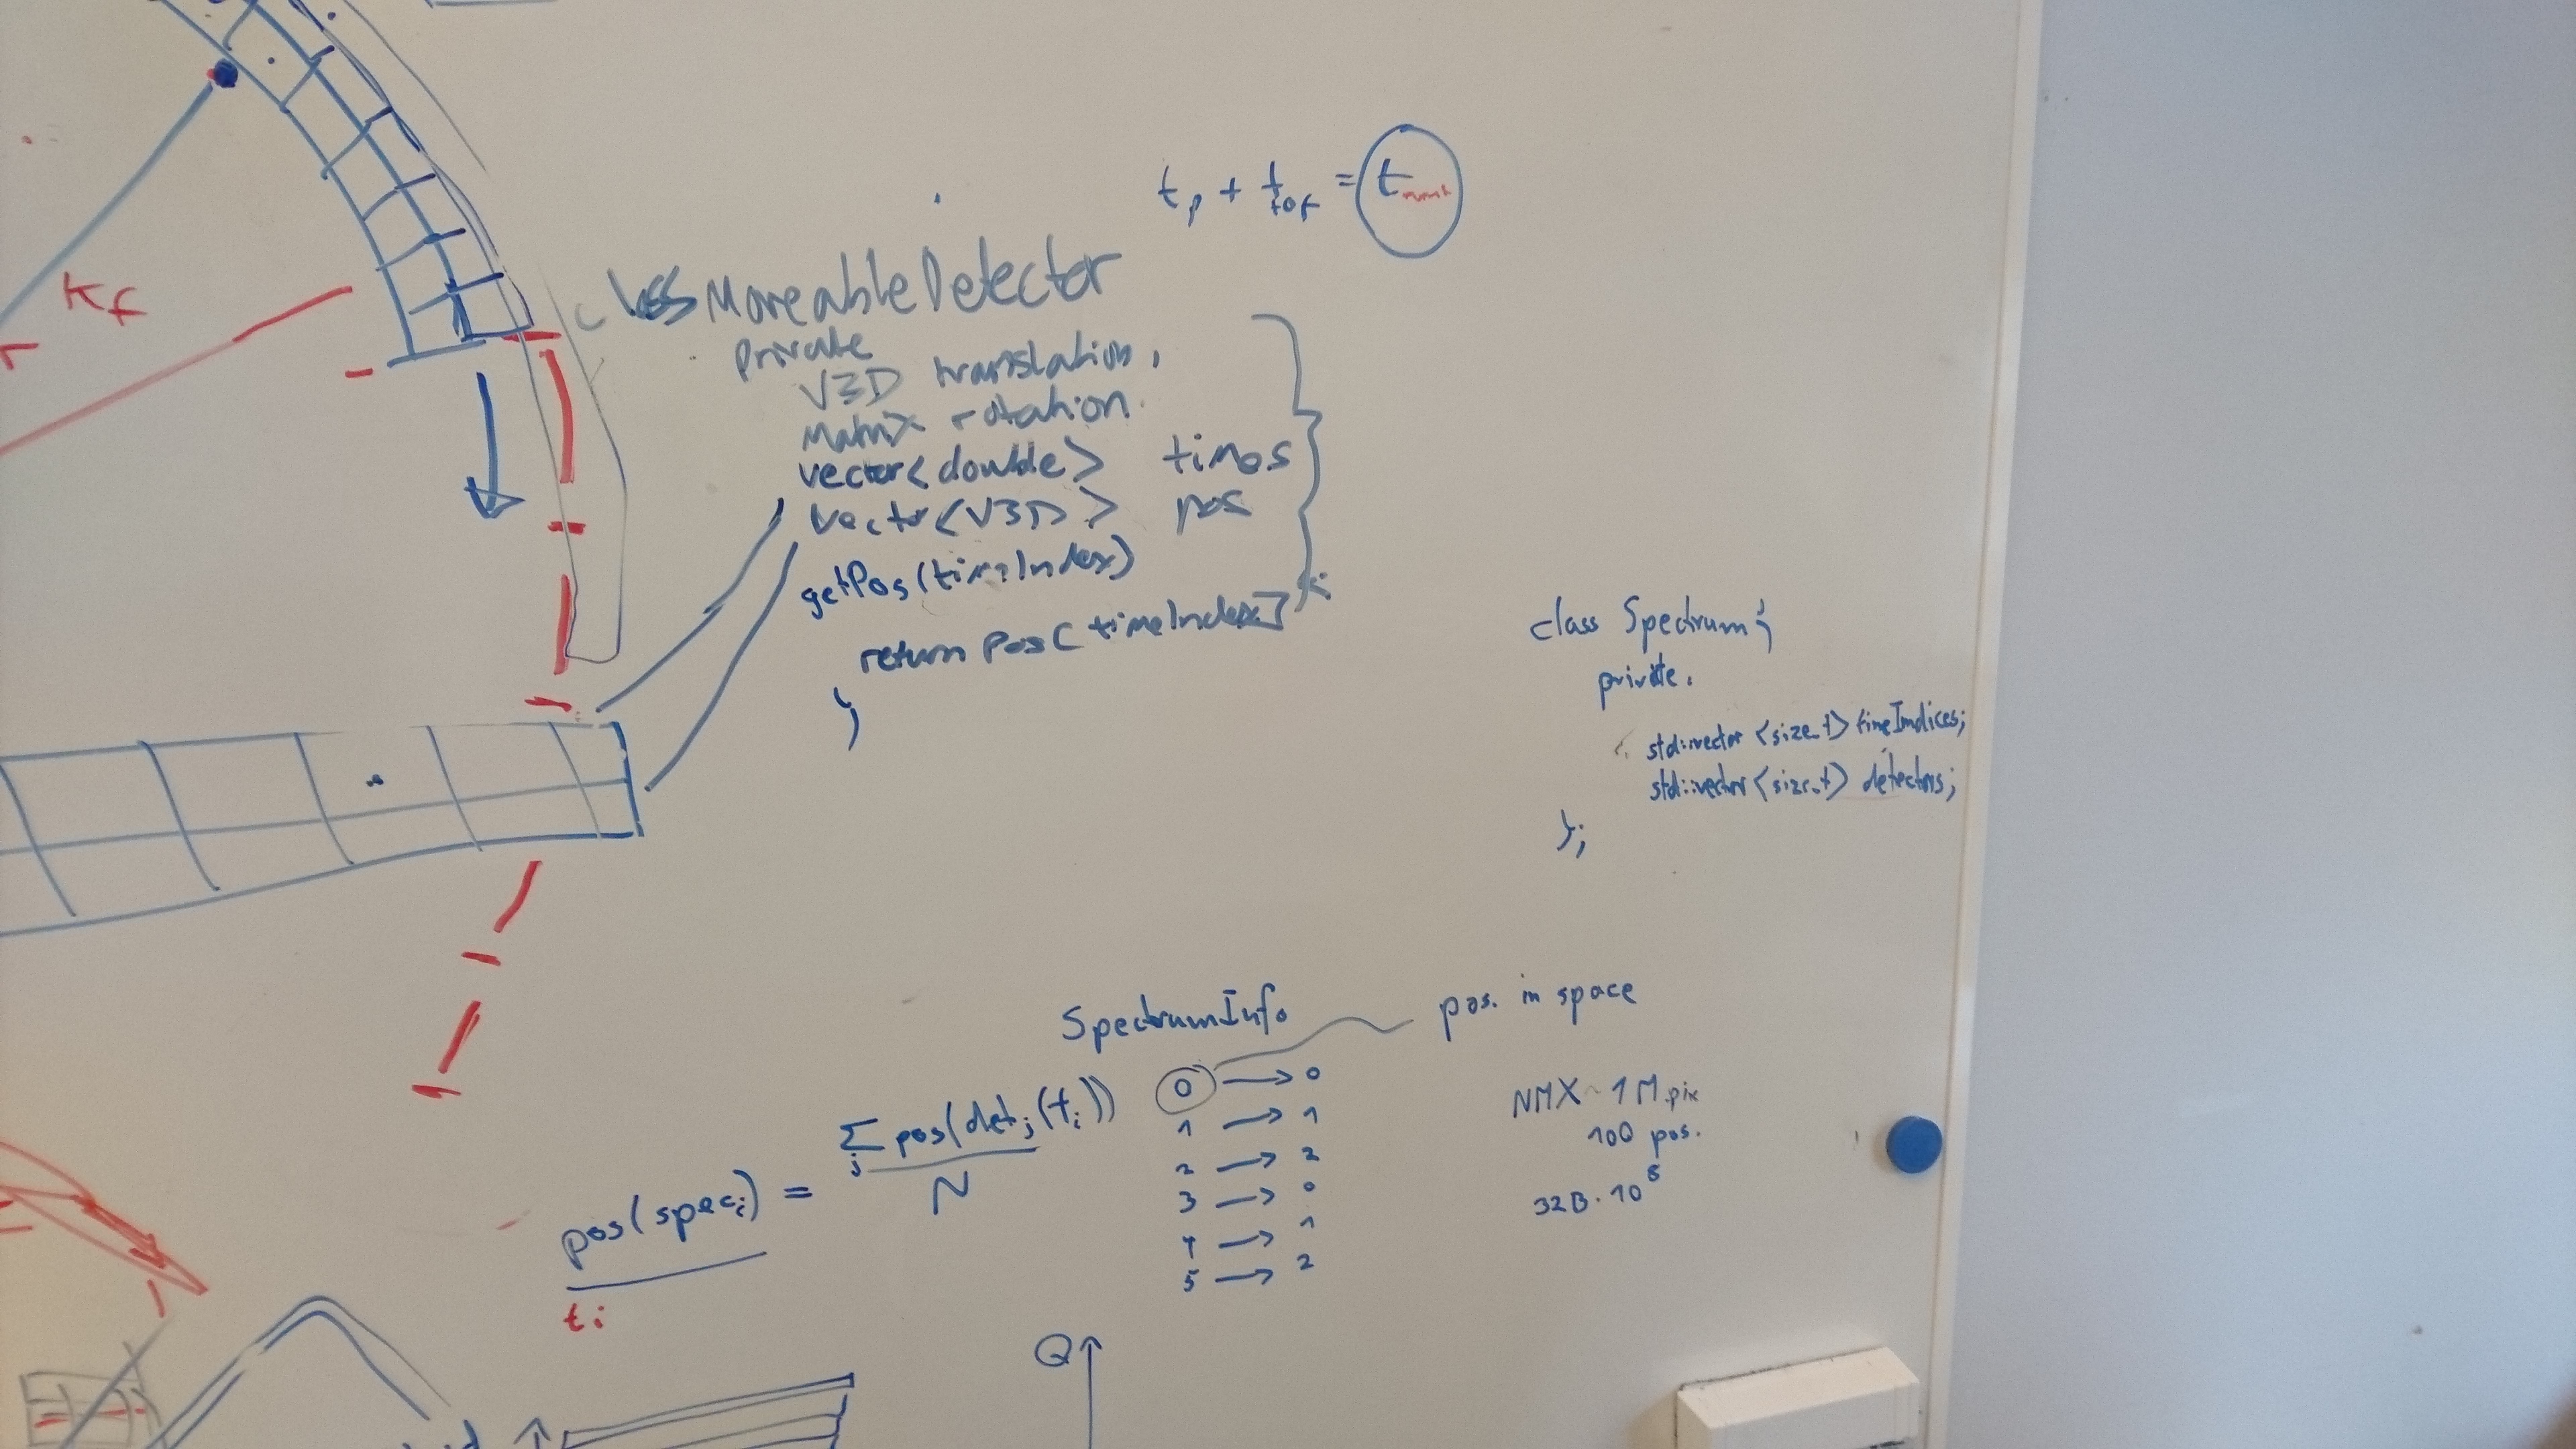 t_p + t_tof = t
K_f
class MoveableDetector
private
V3D translation,
Matrix rotation.
vector<double> times
vector<V3D> pos
getPos(timeIndex)
return pos[timeIndex]
}
class Spectrum {
private:
std::vector <size_t> timeIndices;
std::vector <size_t> detectors;
};
SpectrumInfo
pos. in space
0 → 0
1 → 1
2 → 2
3 → 0
4 → 1
5 → 2
NMX ~ 1 M pix
100 pos.
32B · 10^8
pos(spec_i) = Σ_j pos(det_j(t_i)) / N
t_i
Q